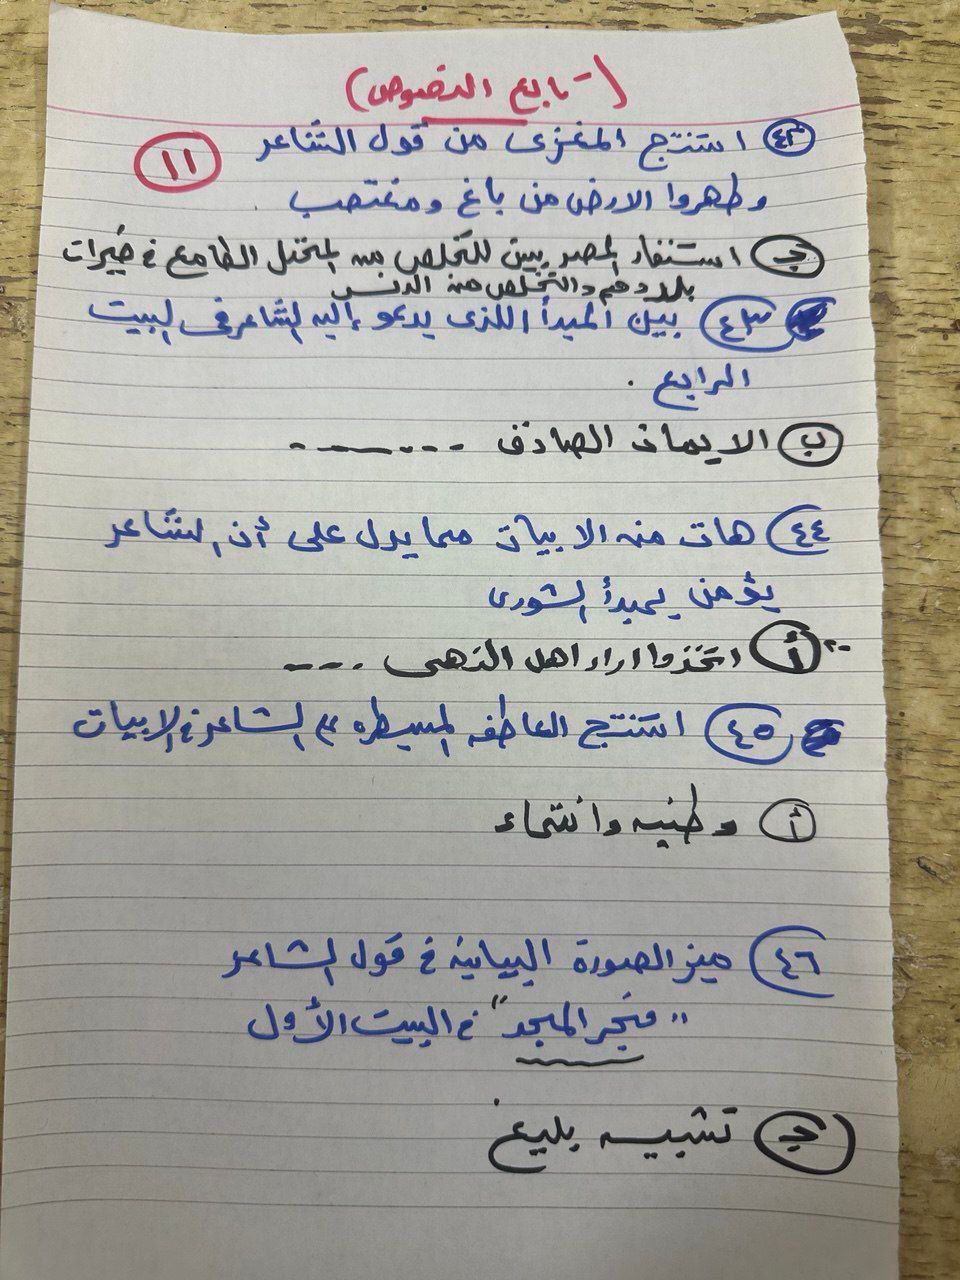 (تابع النصوص)
١١
٤٢ استنتج المغزى من قول الشاعر
وطهروا الارض من باغ ومغتصب .
جـ استنفار المصريين للتخلص من المحتل الطامع في خيرات
بلادهم والتخلص من الدنس
٤٣ بين المبدأ اللذى يدعو إليه الشاعر في البيت
الرابع .
ب الايمان الصادق
٤٤ هات من الابيات مما يدل على أن الشاعر
يؤمن بمبدأ الشورى
أ اتخذوا اراء اهل النهى
٤٥ استنتج العاطفه المسيطره على الشاعر في الابيات
أ وطنيه وانتماء
٤٦ ميز الصورة البيانيه في قول الشاعر
"فجر المجد" في البيت الأول
جـ تشبيه بليغ